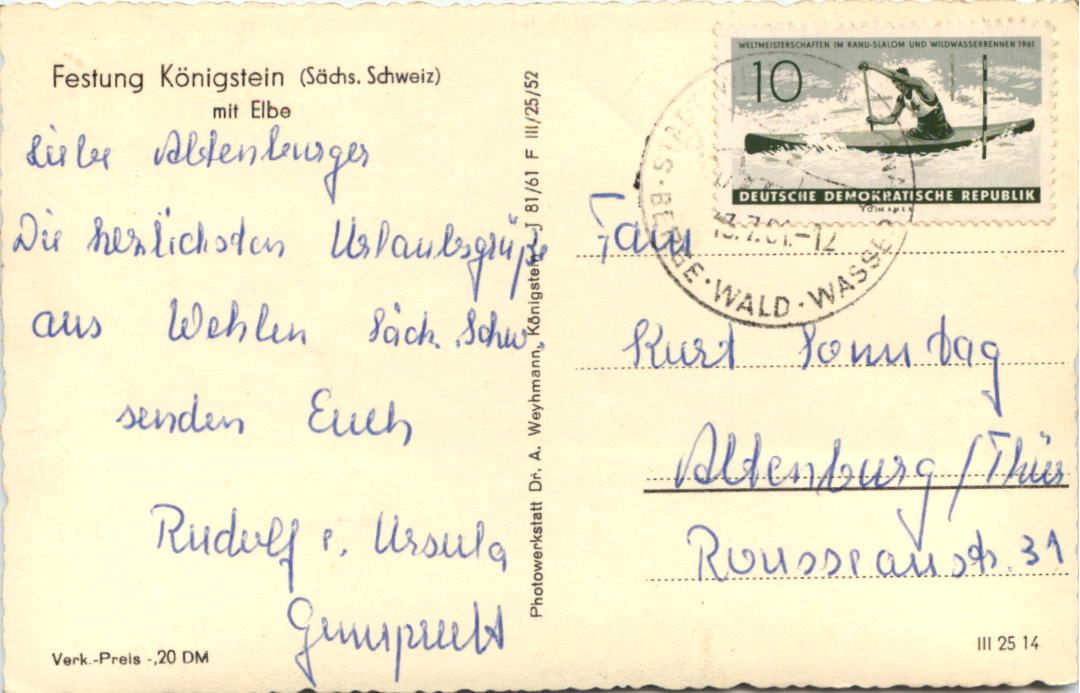 Festung Königstein (Sächs. Schweiz)
mit Elbe
Liebe Altenburger
Die herzlichsten Urlaubsgrüße
aus Wehlen Säch. Schw.
senden Euch
Rudolf u. Ursula
Verk.-Preis -,20 DM
Photowerkstatt Dr. A. Weyhmann, Königstein J 81/61 F III/25/52
WELTMEISTERSCHAFTEN IM KANU-SLALOM UND WILDWASSERRENNEN 1961
10
DEUTSCHE DEMOKRATISCHE REPUBLIK
BERGE · WALD · WASSER
Fam
Kurt Sonntag
Altenburg/Thür
Rousseaustr. 31
III 25 14